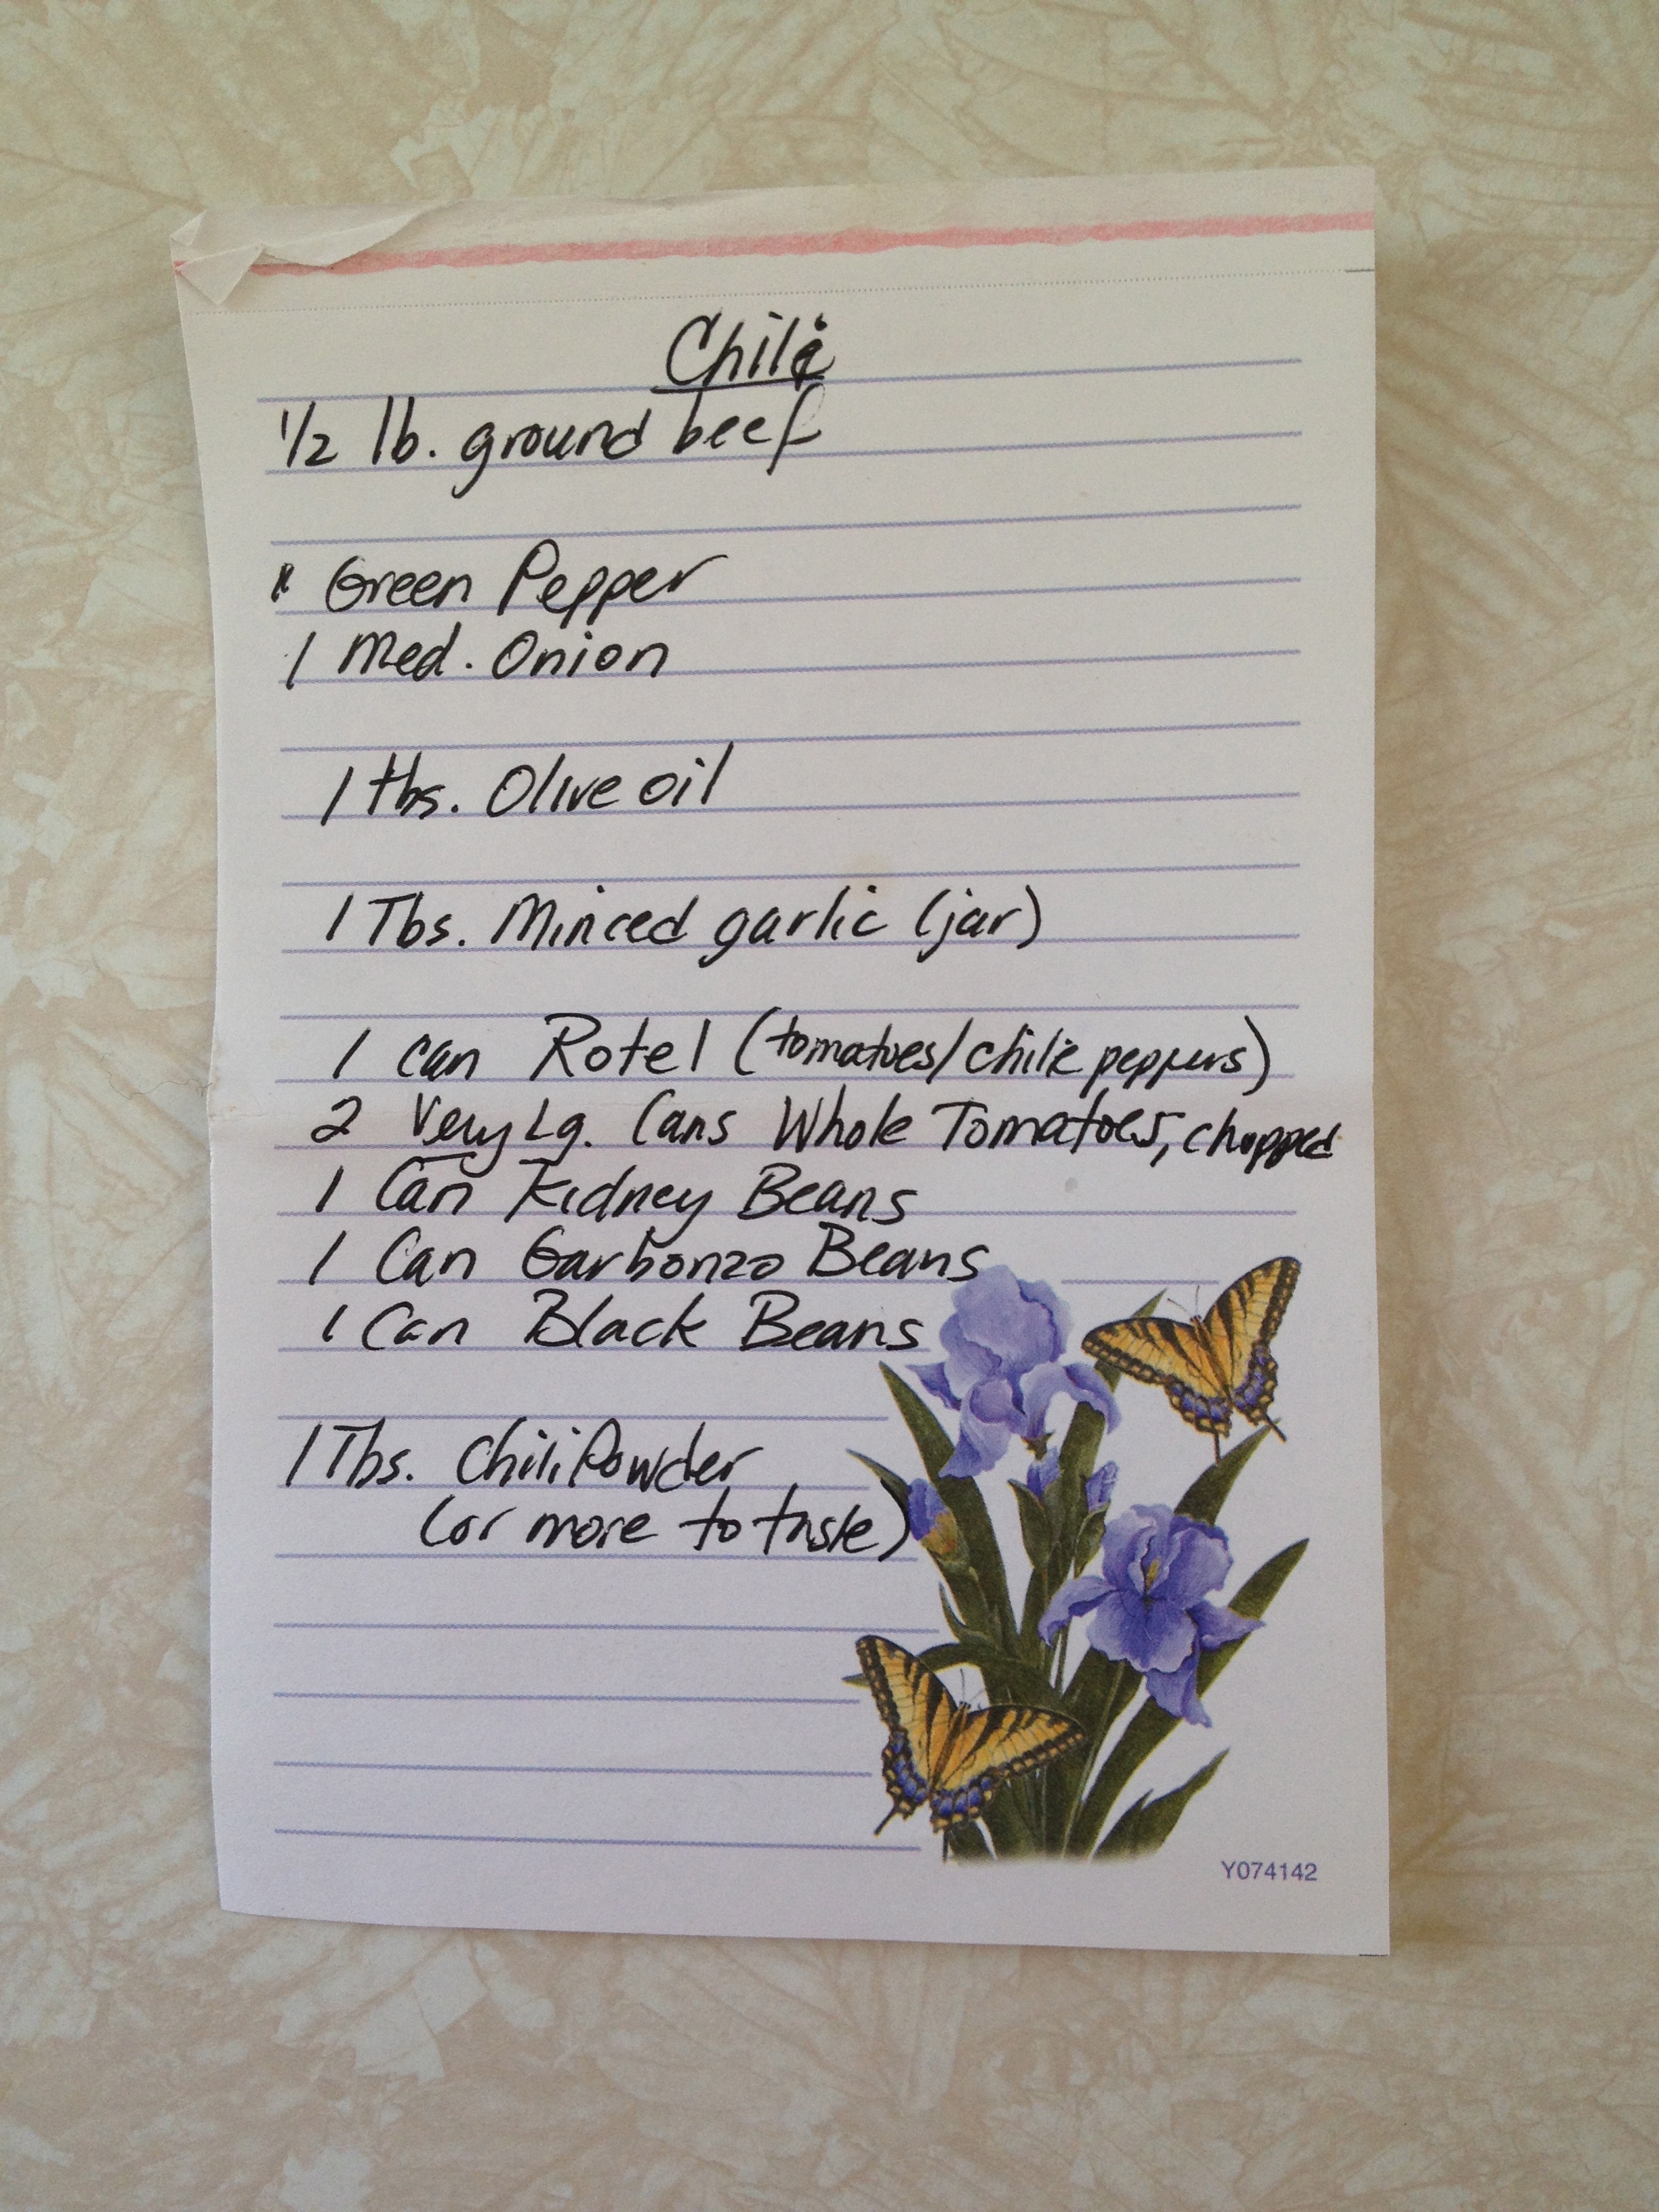 Chili
1/2 lb. ground beef
Green Pepper
1 Med. Onion
1 tbs. Olive oil
1 Tbs. Minced garlic (jar)
1 can Rotel (tomatoes/chili peppers)
2 Very Lg. Cans Whole Tomatoes, chopped
1 Can Kidney Beans
1 Can Garbonzo Beans
1 Can Black Beans
1 Tbs. Chili Powder
(or more to taste)
Y074142